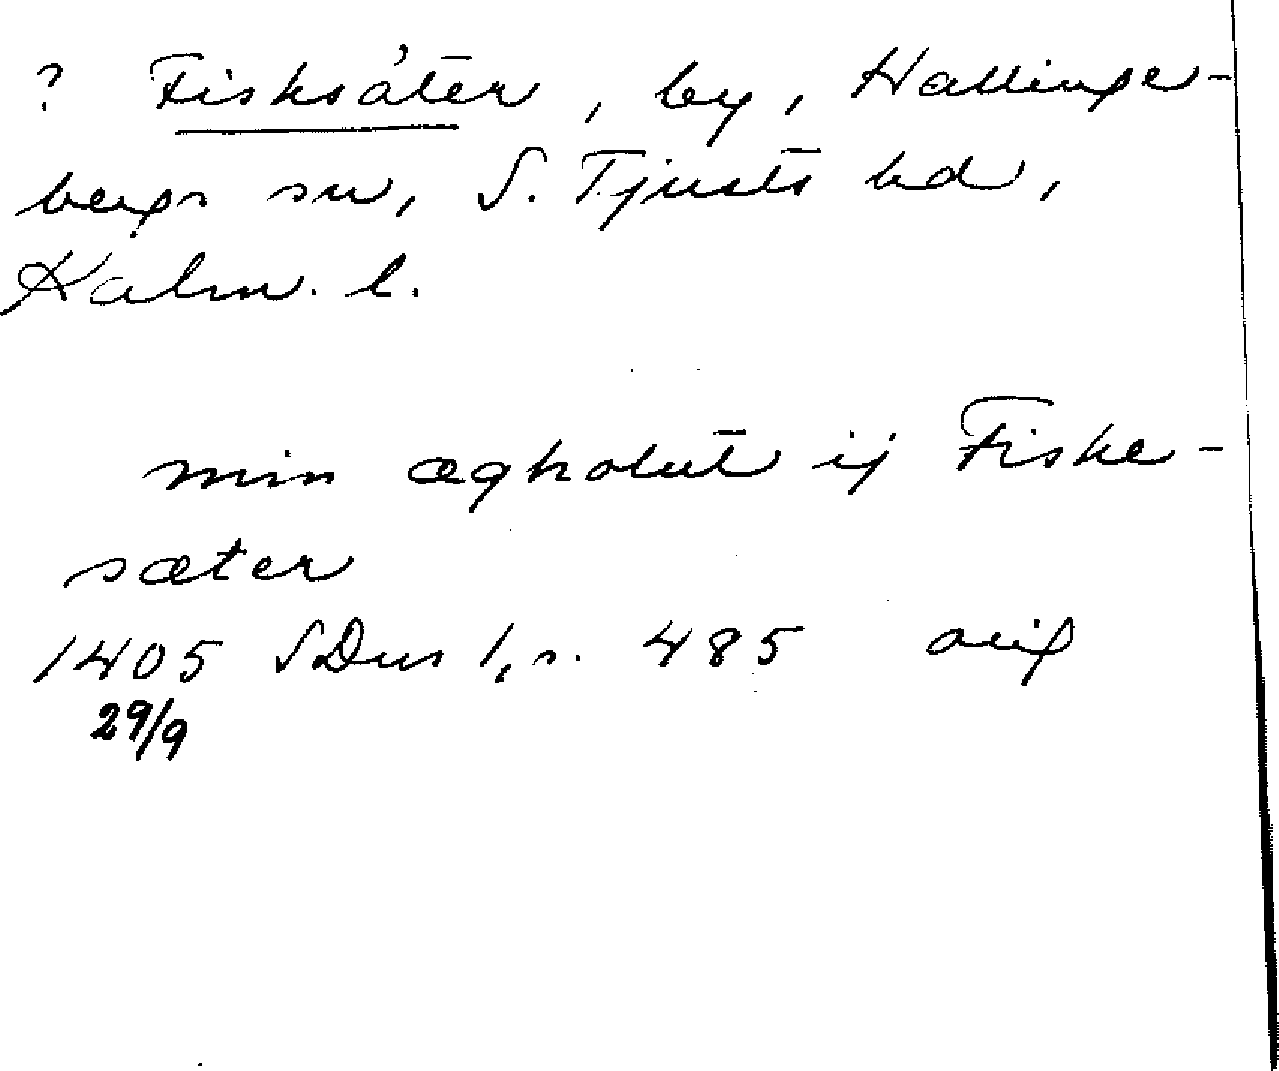 ? Fisksäter, by, Hallinge-
bergs sn, S. Tjusts hd,
Kalm. l.
min ægholut ij Fiske-
sæter
1405 SDns 1, s. 485 orig
29/9